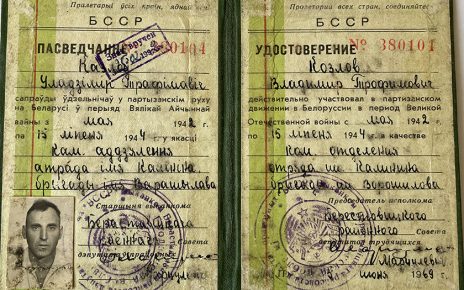 Пралетарыі ўсіх краін, яднайцеся!
БССР
ПАСВЕДЧАННЕ
Козлов
Уладзімір Трафімовіч
сапраўды ўдзельнічаў у партызанскім руху
на Беларусі ў перыяд Вялікай Айчыннай
вайны з мая 1942 г.
па 15 ліпеня 1944 г. у якасці
Ком. аддзялення
атрада імя Калініна
брыгады імя Варашылава
Старшыня выканкома
Савета
дэпутатаў працоўных
Пролетарии всех стран, соединяйтесь!
БССР
УДОСТОВЕРЕНИЕ № 380101
Козлов
Владимир Трофимович
действительно участвовал в партизанском
движении в Белоруссии в период Великой
Отечественной войны с мая 1942 г.
по 15 июля 1944 г. в качестве
Ком. отделения
отряда им. Калинина
бригады им. Ворошилова
Председатель исполкома
Берестовицкого
районного Совета
депутатов трудящихся
июня 1969 г.